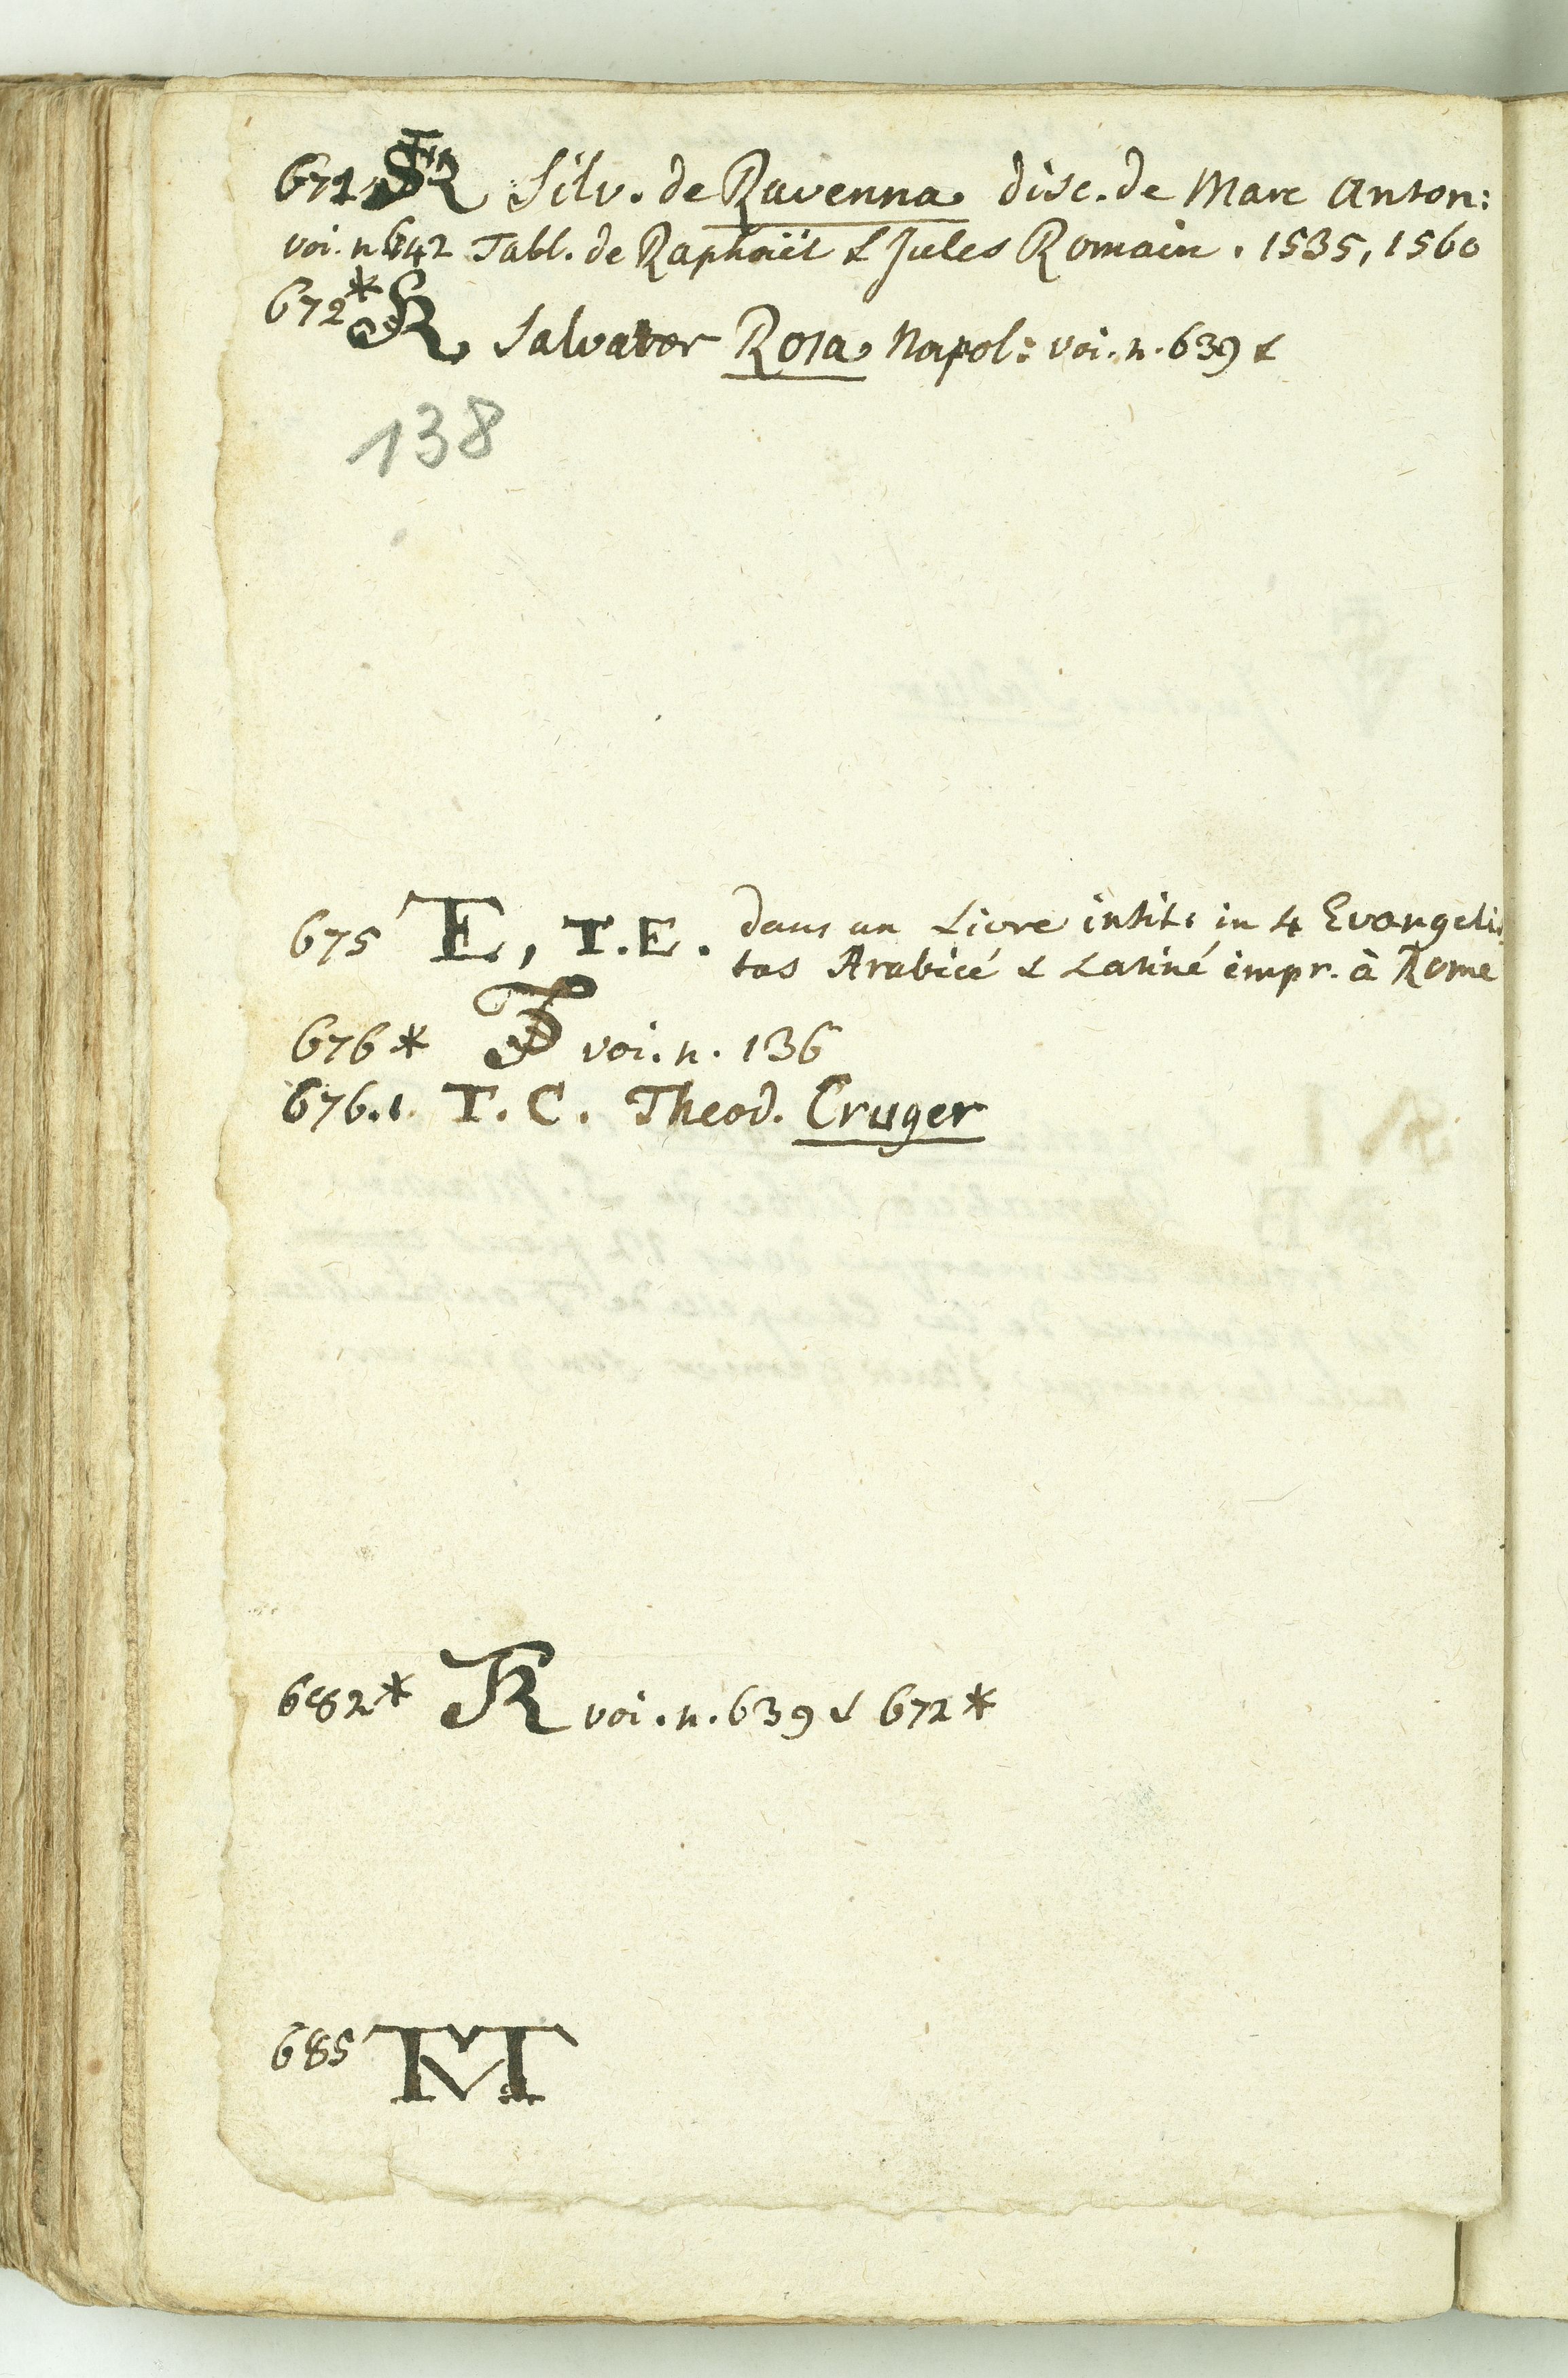 671 SR Silv. de Ravenna disc. de Marc Anton:
voi. n. 642 Tabl. de Raphaël & Jules Romain. 1535, 1560
672* SR Salvator Rosa Napol: voi. n. 639 &
138
675 TE, T.E. dans un Livre intit: in 4 Evangelis
tas Arabicé & Latiné impr. à Rome
676* voi. n. 136
676.1. T. C. Theod. Cruger
682* voi. n. 639 & 672*
685 TMT